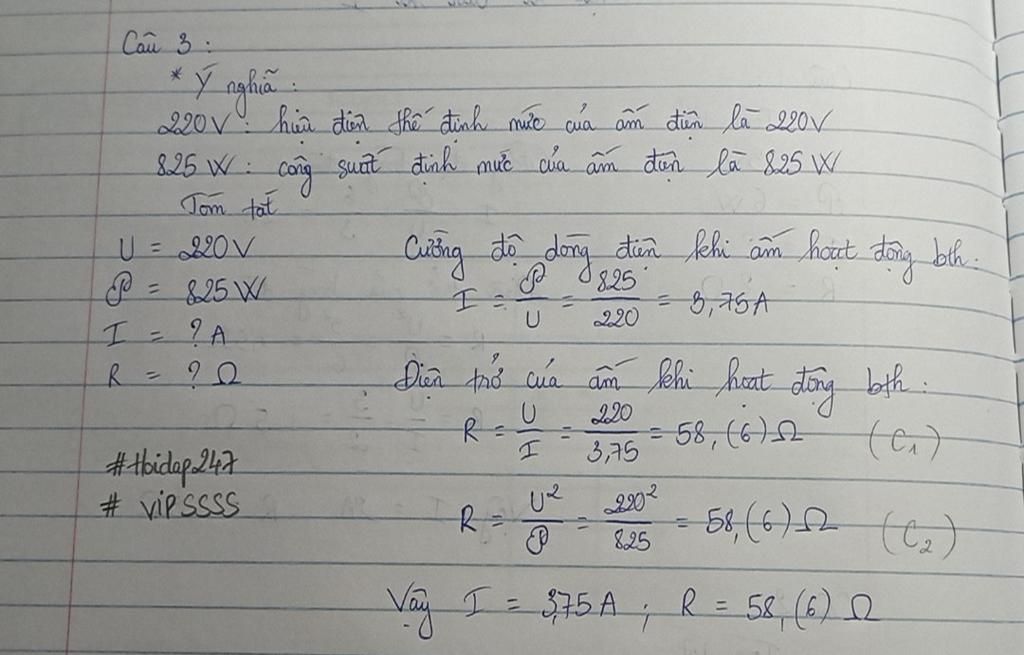 Câu 3 :
* Ý nghĩa :
220V : hiệu điện thế định mức của ấm điện là 220V
825 W : công suất định mức của ấm điện là 825 W
Tóm tắt
U = 220V
P = 825 W
I = ? A
R = ? Ω
Cường độ dòng điện khi ấm hoạt động bth :
I = P/U = 825/220 = 3,75 A
Điện trở của ấm khi hoạt động bth :
R = U/I = 220/3,75 = 58,(6) Ω (C₁)
R = U²/P = 220²/825 = 58,(6) Ω (C₂)
Vậy I = 3,75 A ; R = 58,(6) Ω
#Hoidap247
# vipssss